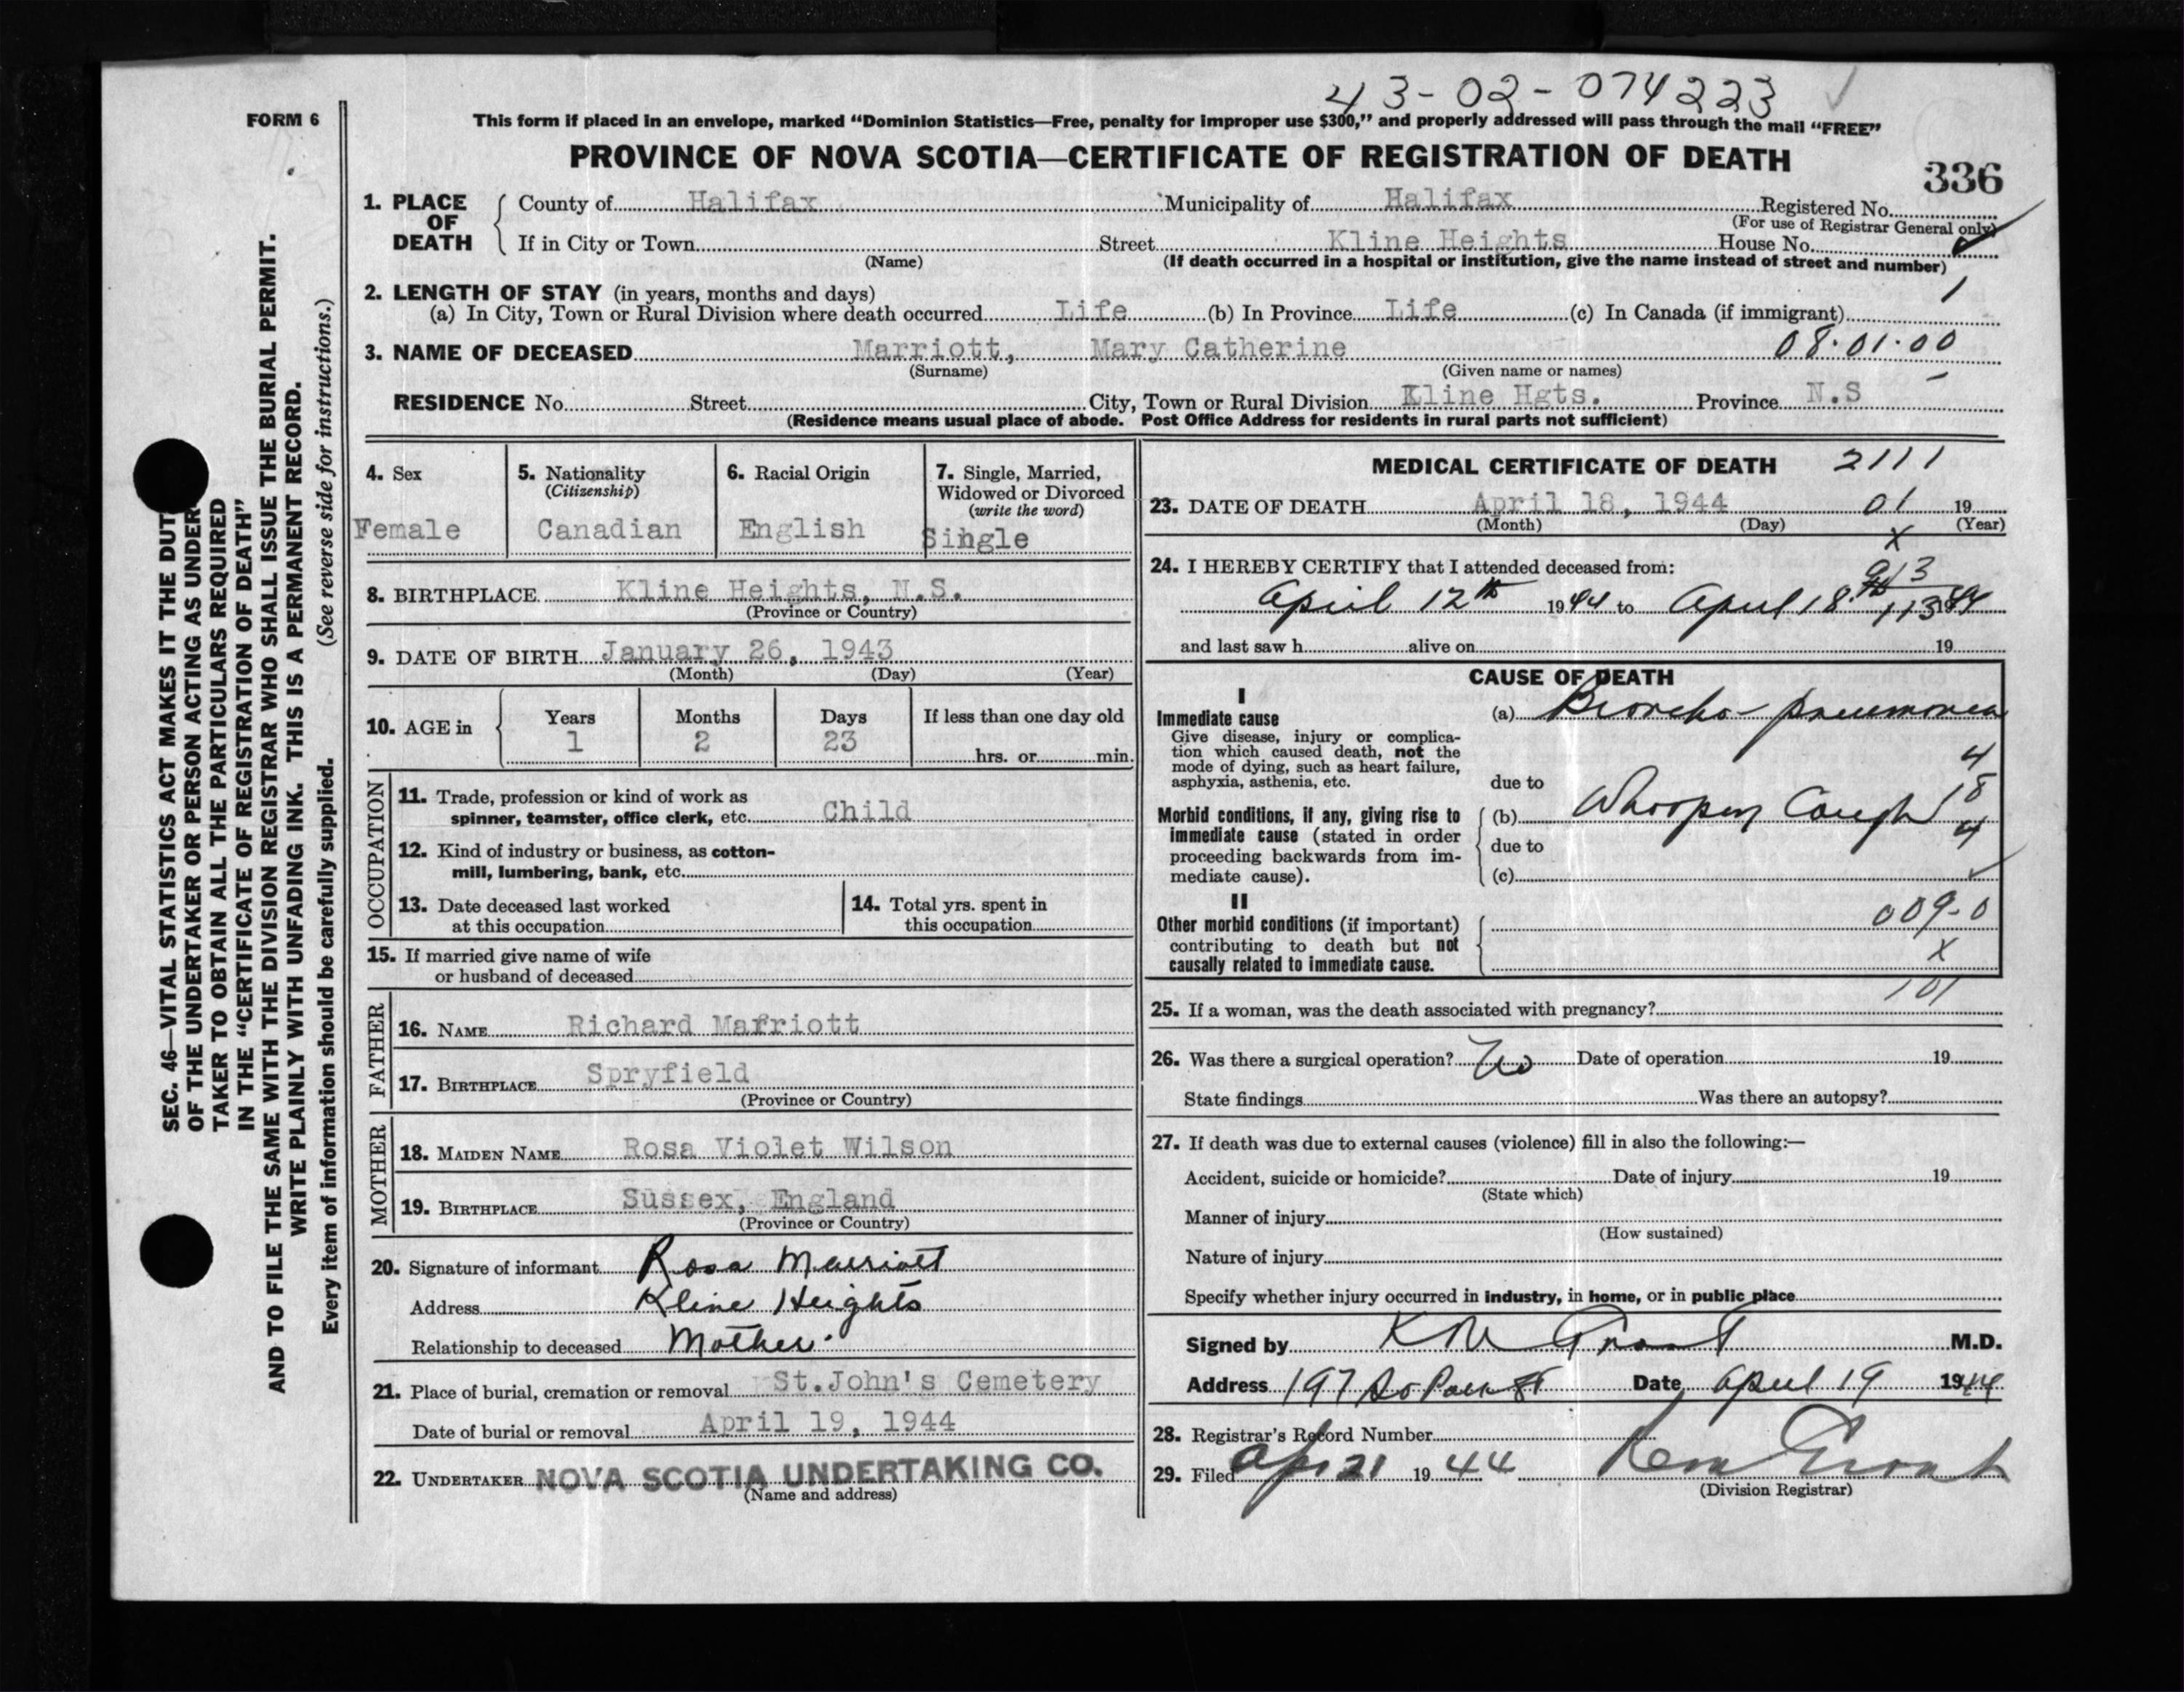 43-02-074223
FORM 6
This form if placed in an envelope, marked "Dominion Statistics—Free, penalty for improper use $300," and properly addressed will pass through the mail "FREE"
PROVINCE OF NOVA SCOTIA—CERTIFICATE OF REGISTRATION OF DEATH
336
1. PLACE OF DEATH
County of Halifax Municipality of Halifax Registered No.
(For use of Registrar General only)
If in City or Town Street Kline Heights House No.
(Name) (If death occurred in a hospital or institution, give the name instead of street and number)
2. LENGTH OF STAY (in years, months and days) 1
(a) In City, Town or Rural Division where death occurred Life (b) In Province Life (c) In Canada (if immigrant)
3. NAME OF DECEASED Marriott, Mary Catherine 08.01.00
(Surname) (Given name or names)
RESIDENCE No. Street City, Town or Rural Division Kline Hgts. Province N.S
(Residence means usual place of abode. Post Office Address for residents in rural parts not sufficient)
4. Sex
Female
5. Nationality
(Citizenship)
Canadian
6. Racial Origin
English
7. Single, Married,
Widowed or Divorced
(write the word)
Single
8. BIRTHPLACE Kline Heights, N.S.
(Province or Country)
9. DATE OF BIRTH January 26, 1943
(Month) (Day) (Year)
10. AGE in Years Months Days If less than one day old
1 2 23 hrs. or min.
OCCUPATION
11. Trade, profession or kind of work as
spinner, teamster, office clerk, etc. Child
12. Kind of industry or business, as cotton-
mill, lumbering, bank, etc.
13. Date deceased last worked
at this occupation
14. Total yrs. spent in
this occupation
15. If married give name of wife
or husband of deceased
FATHER
16. NAME Richard Marriott
17. BIRTHPLACE Spryfield
(Province or Country)
MOTHER
18. MAIDEN NAME Rosa Violet Wilson
19. BIRTHPLACE Sussex, England
(Province or Country)
20. Signature of informant Rosa Marriott
Address Kline Heights
Relationship to deceased Mother.
21. Place of burial, cremation or removal St.John's Cemetery
Date of burial or removal April 19, 1944
22. UNDERTAKER NOVA SCOTIA UNDERTAKING CO.
(Name and address)
MEDICAL CERTIFICATE OF DEATH 2111
23. DATE OF DEATH April 18, 1944 01 19
(Month) (Day) (Year)
x
24. I HEREBY CERTIFY that I attended deceased from:
April 12th 1944 to April 18 1944
and last saw h alive on 19
CAUSE OF DEATH
I
Immediate cause
Give disease, injury or complica-
tion which caused death, not the
mode of dying, such as heart failure,
asphyxia, asthenia, etc.
(a) Broncho-pneumonia
due to
Morbid conditions, if any, giving rise to
immediate cause (stated in order
proceeding backwards from im-
mediate cause).
(b) Whooping Cough
due to
(c)
II
Other morbid conditions (if important)
contributing to death but not
causally related to immediate cause.
009-0
x
101
25. If a woman, was the death associated with pregnancy?
26. Was there a surgical operation? No Date of operation 19
State findings Was there an autopsy?
27. If death was due to external causes (violence) fill in also the following:—
Accident, suicide or homicide? Date of injury 19
(State which)
Manner of injury
(How sustained)
Nature of injury
Specify whether injury occurred in industry, in home, or in public place
Signed by Grant M.D.
Address 197 So Park St Date April 19 1944
28. Registrar's Record Number
29. Filed Apr 21 1944 Grant
(Division Registrar)
SEC. 46—VITAL STATISTICS ACT MAKES IT THE DUT
OF THE UNDERTAKER OR PERSON ACTING AS UNDER
TAKER TO OBTAIN ALL THE PARTICULARS REQUIRED
IN THE "CERTIFICATE OF REGISTRATION OF DEATH"
AND TO FILE THE SAME WITH THE DIVISION REGISTRAR WHO SHALL ISSUE THE BURIAL PERMIT.
WRITE PLAINLY WITH UNFADING INK. THIS IS A PERMANENT RECORD.
Every item of information should be carefully supplied. (See reverse side for instructions.)